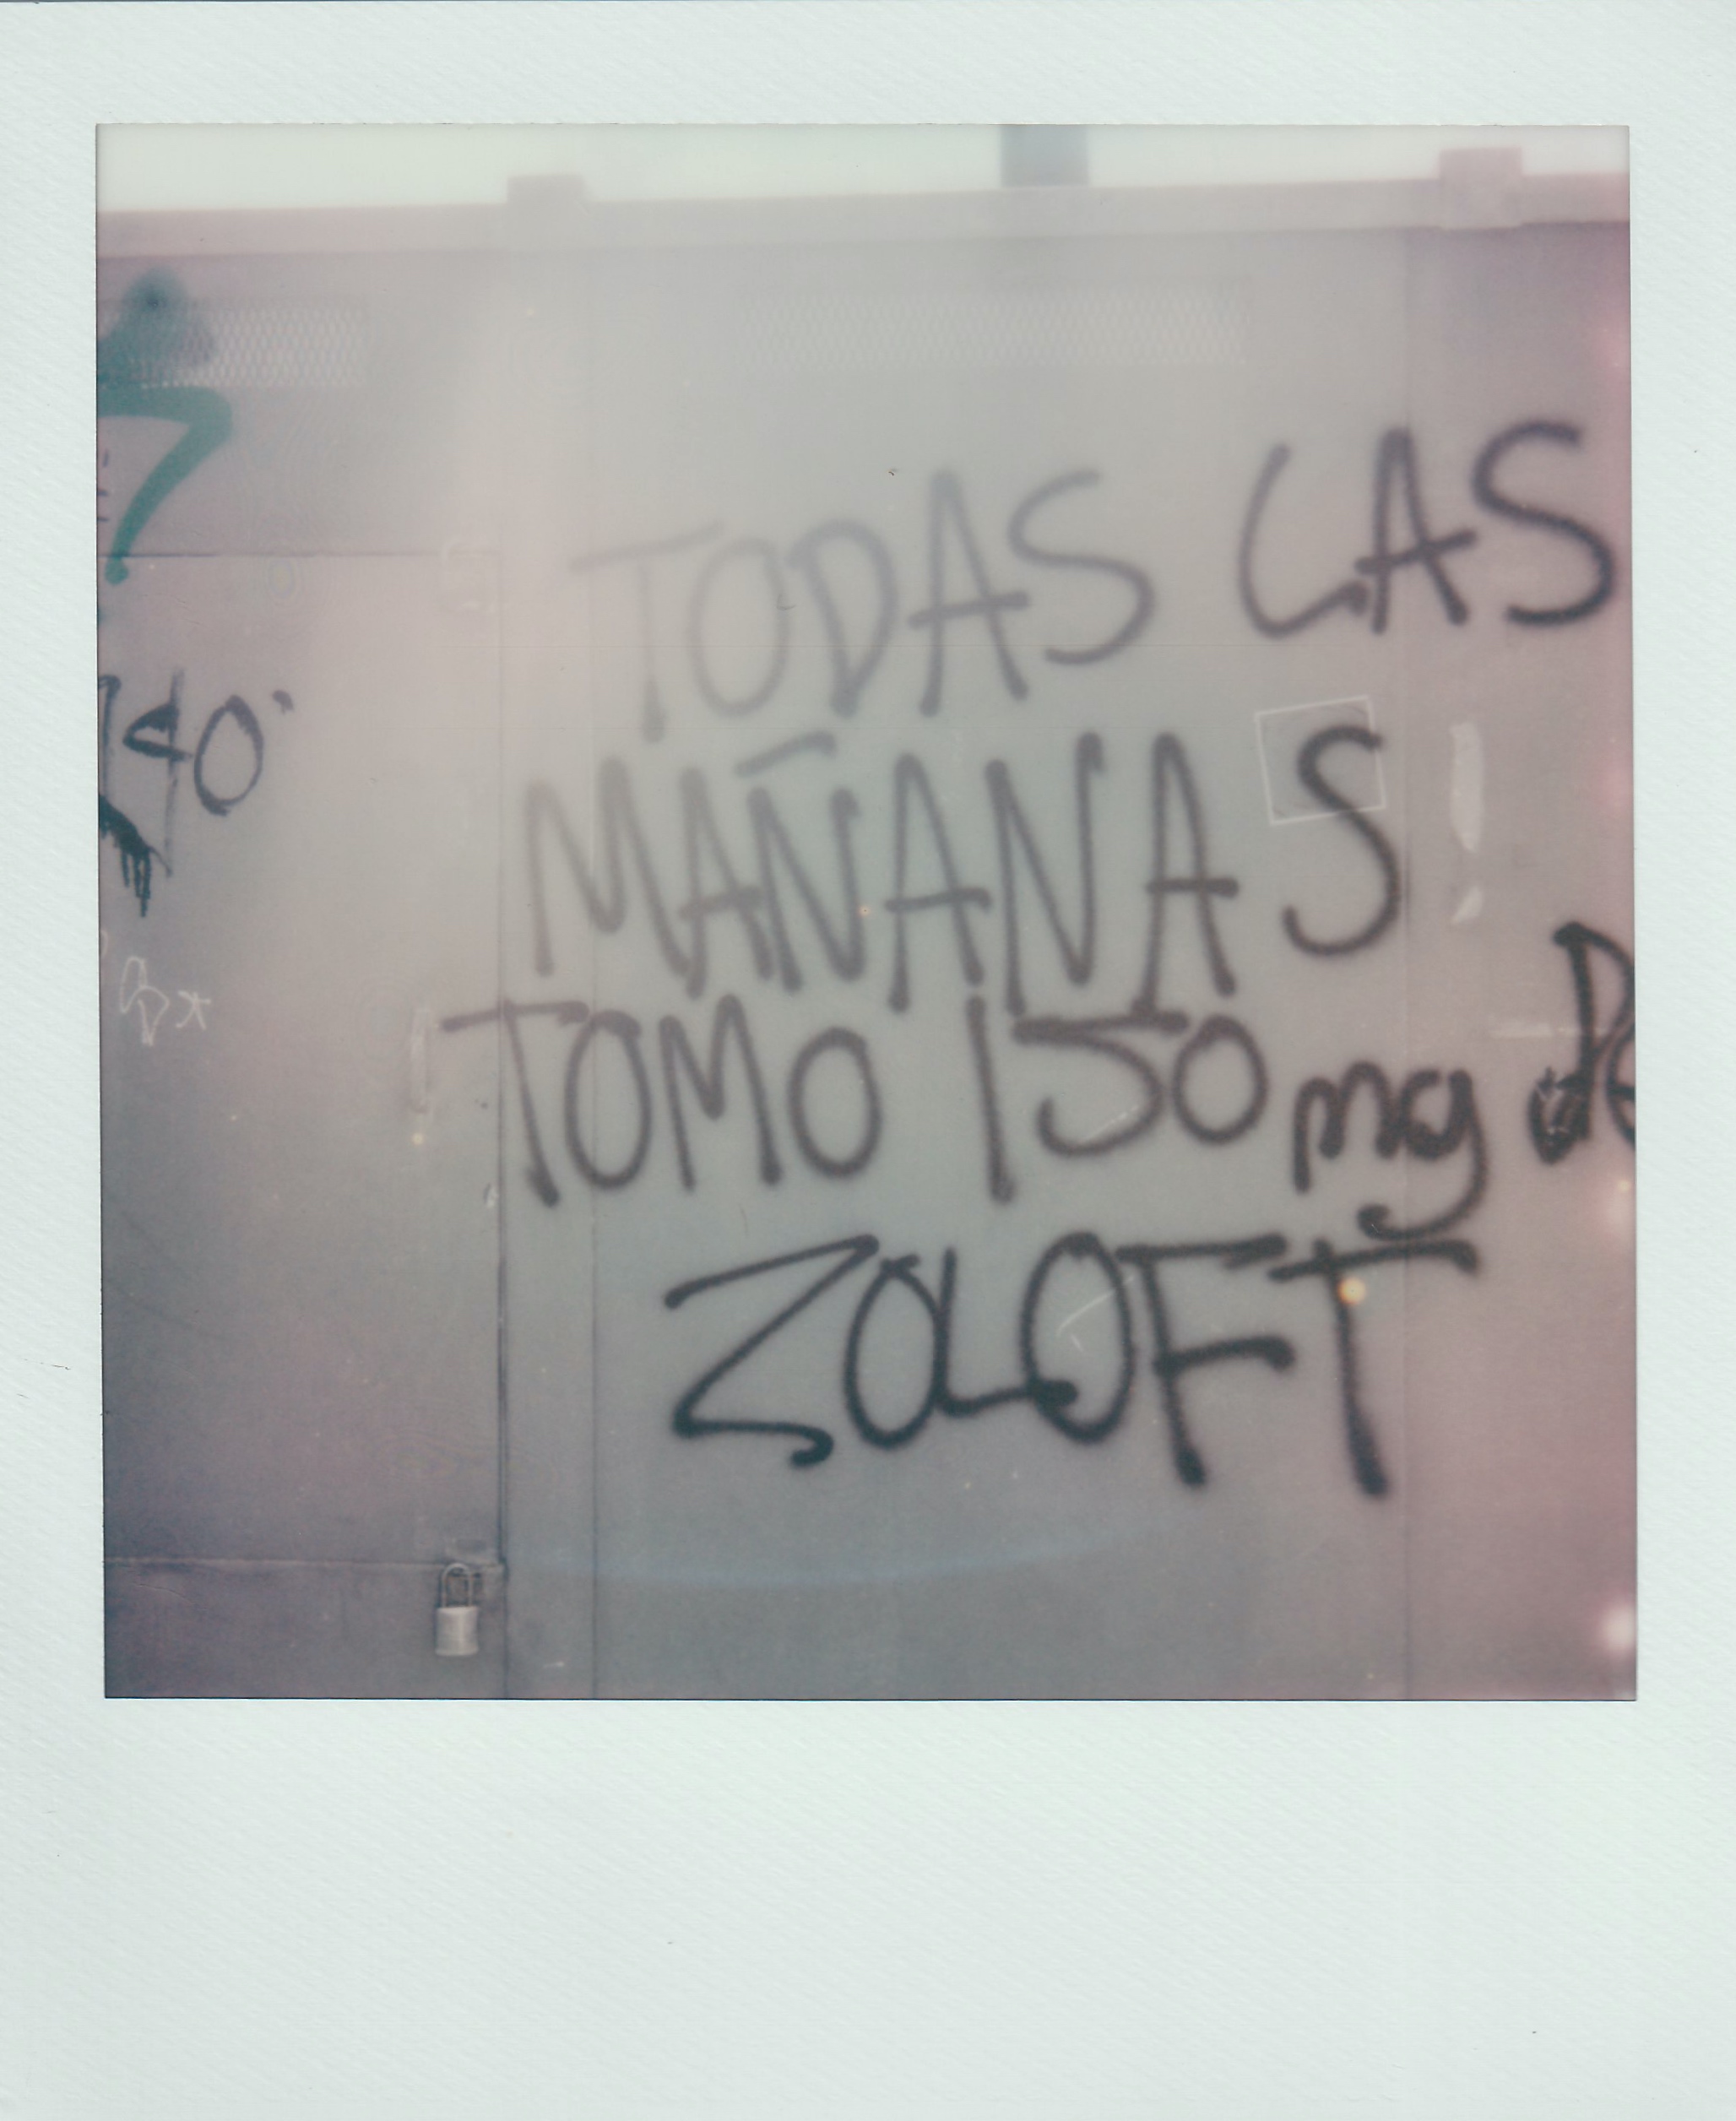 TODAS LAS
MAÑANAS
TOMO 150mg de
ZOLOFT